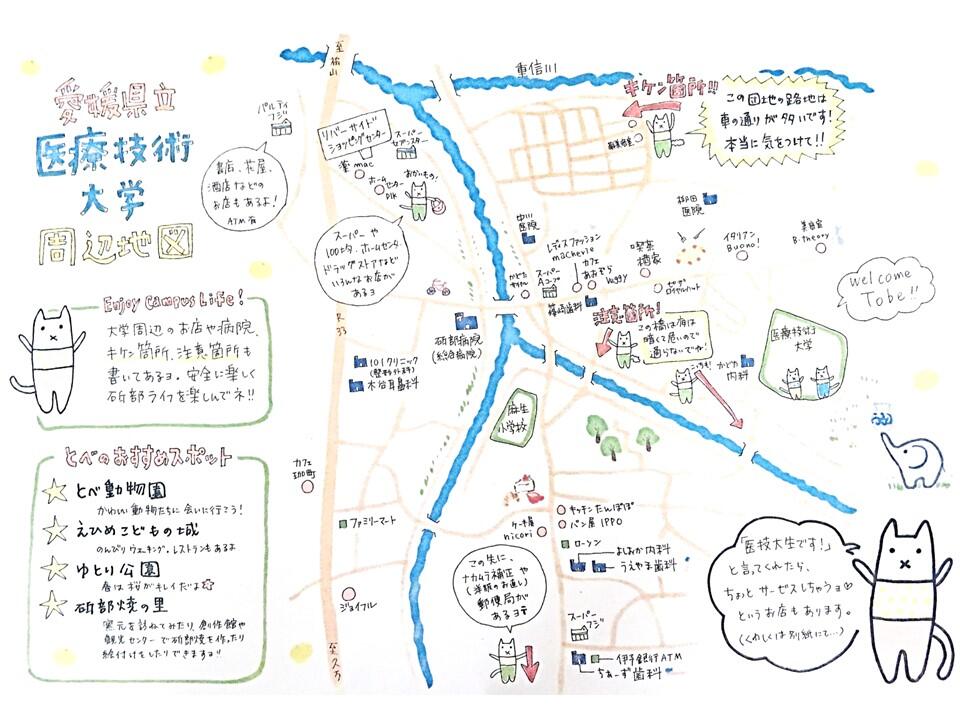 愛媛県立
医療技術
大学
周辺地図
Enjoy Campus Life!
大学周辺のお店や病院、
キケン箇所、注意箇所も
書いてあるヨ。安全に楽しく
砥部ライフを楽しんでネ!!
とべのおすすめスポット
とべ動物園
かわいい動物たちに会いに行こう!
えひめこどもの城
のんびりウォーキング。レストランもあるよ
ゆとり公園
春は桜がキレイだよ
砥部焼の里
窯元を訪ねてみたり、創作館や
観光センターで砥部焼を作ったり
絵付けをしたりできますョ!!
パルティ
フジ
書店、花屋、
酒店などの
お店もあるよ!
ATM有
至
松山
リバーサイド
ショッピングセンター
スーパー
セブンスター
薬mac
ホーム
センター
DIK
おかいもの!
スーパーや
100均、ホームセンター
ドラッグストアなど
いろんなお店が
あるヨ
重信川
キケン箇所!!
この団地の路地は
車の通りが多いです!
本当に気をつけて!!
中川
医院
レディスファッション
macherie
カフェ
あおぞら
Huggy
スーパー
Aコープ
篠崎歯科
喫茶
橘家
医院
イタリアン
Buono!
美容室
B.theory
welcome
Tobe!!
R
33
砥部病院
(総合病院)
101クリニック
(整形外科)
木谷耳鼻科
注意箇所!
この橋は夜は
暗くて危いので
通らないでね!
こっちも!
かどた
内科
医療技術
大学
麻生
小学校
カフェ
珈町
ファミリーマート
ジョイフル
至久万
ケーキ屋
nicori
キッチンたんぽぽ
パン屋 IPPO
ローソン
よしおか内科
うえやま歯科
この先に、
ナカムラ補正や
(洋服のお直し)
郵便局が
あるよ〒
スーパー
フジ
伊予銀行ATM
ちあーず歯科
「医技大生です!」
と言ってくれたら、
ちょっとサービスしちゃうョ♡
というお店もあります。
(くわしくは別紙にも…)